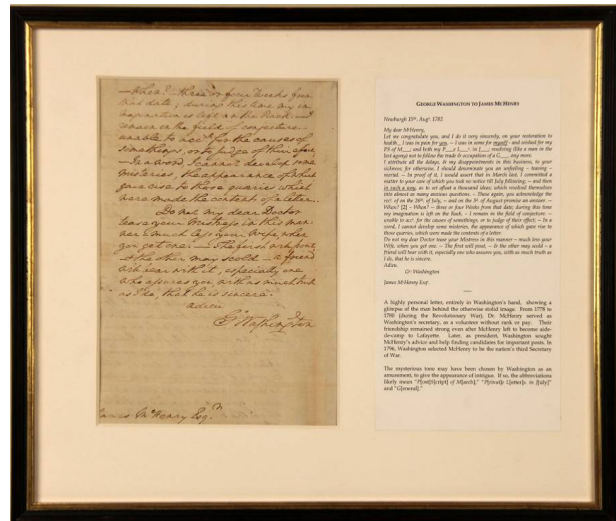 — When? — three or four Weeks from
that date; during this time my im
magination is left on the Rack. — I
remain in the field of conjecture —
unable to acct. for the causes of
somethings, or to judge of their effect.
— In a word, I cannot develop some
misteries, the appearance of which
gave rise to those queries which
were made the contents of a letter.
Do not my dear Doctor
tease your Mistress in this man-
ner — much less your Wife, when
you get one: — The first will pout,
& the other may scold — a friend
will bear with it, especially one
who assures you, with as much truth
as I do, that he is sincere.
adieu
Go: Washington
James McHenry Esqr.
GEORGE WASHINGTON TO JAMES MCHENRY
Newburgh 15th. Augt. 1782
My dear McHenry,
Let me congratulate you, and I do it very sincerely, on your restoration to
health.
I attribute all the delays, & my disappointments in this business, to your
sickness; for otherwise, I should denominate you an unfeeling – teasing –
mortal. – In proof of it, I would assert that in March last, I committed a
matter to your care of which you took no notice till July following; – and then
in such a way, as to set afloat a thousand ideas; which resolved themselves
into almost as many anxious questions. – These again, you acknowledge the
rect. of on the 26th. of July, – and on the 3d. of August promise an answer. –
When? [2] – When? – three or four Weeks from that date; during this time
my imagination is left on the Rack. – I remain in the field of conjecture. –
unable to acct. for the causes of somethings, or to judge of their effect. – In a
word, I cannot develop some misteries, the appearance of which gave rise to
those queries, which were made the contents of a letter.
Do not my dear Doctor tease your Mistress in this manner – much less your
Wife, when you get one. – The first will pout, – & the other may scold – a
friend will bear with it, especially one who assures you, with as much truth as
I do, that he is sincere.
Adieu.
Go: Washington
James McHenry Esqr.
A highly personal letter, entirely in Washington's hand, showing a
glimpse of the man behind the otherwise stolid image. From 1778 to
1780 (during the Revolutionary War), Dr. McHenry served as
Washington's secretary, as a volunteer without rank or pay. Their
friendship remained strong even after McHenry left to become aide-
de-camp to Lafayette. Later, as president, Washington sought
McHenry's advice and help finding candidates for important posts. In
1796, Washington selected McHenry to be the nation's third Secretary
of War.
The mysterious tone may have been chosen by Washington as an
amusement, to give the appearance of intrigue. If so, the abbreviations
likely mean "P[ost]S[cript] of M[arch]," "P[rivat]e L[etter]s. in J[uly]"
and "G[eneral]."